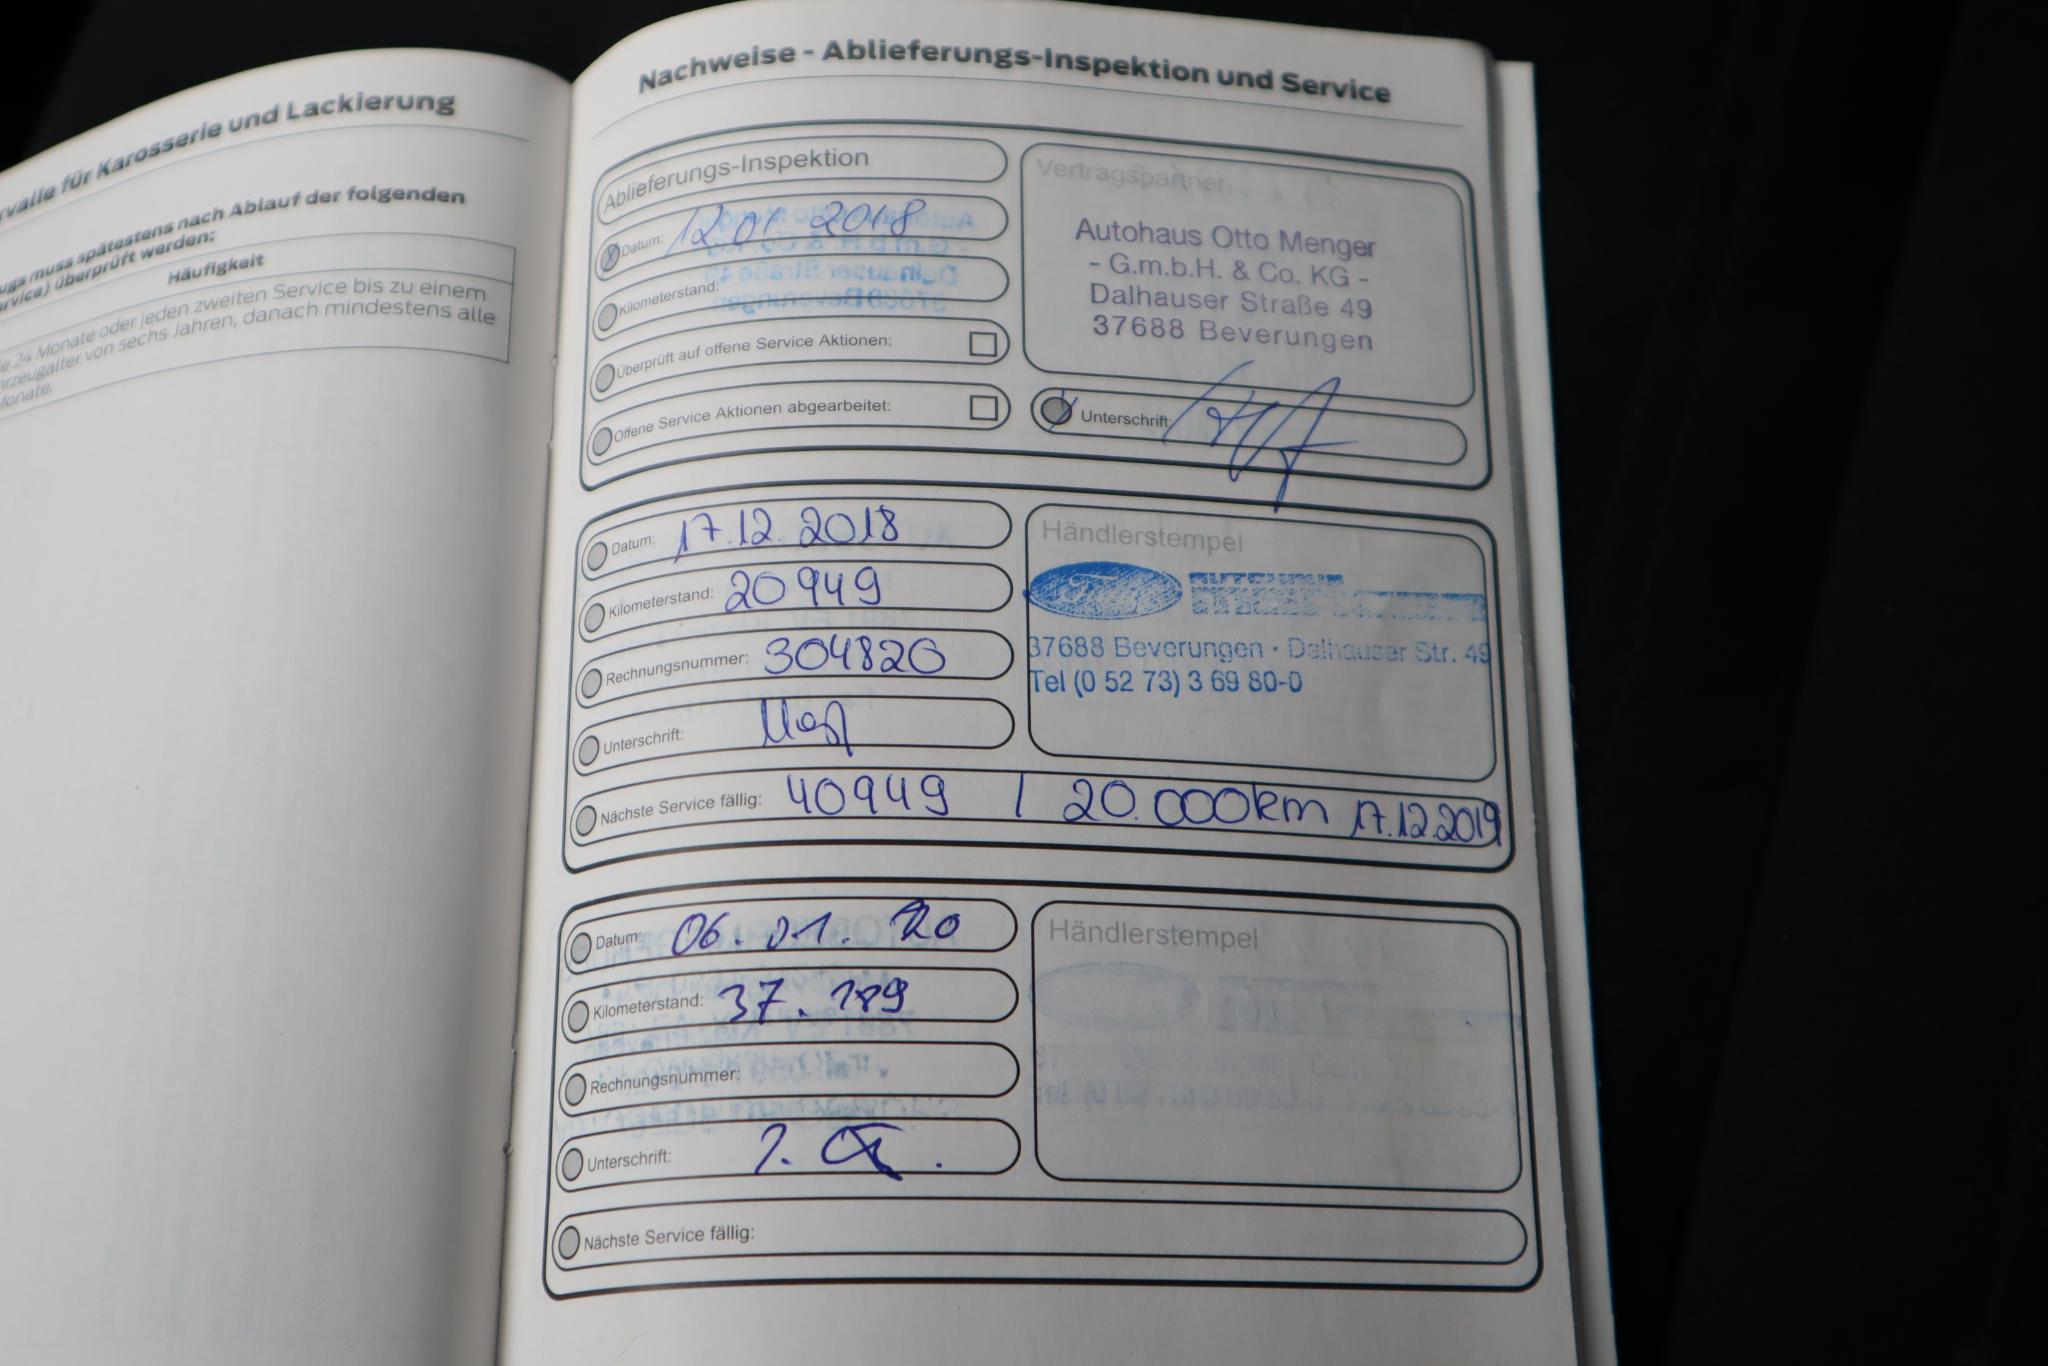 rvalle für Karosserie und Lackierung
ugs muss spätestens nach Ablauf der folgenden
rvice) überprüft werden:
Häufigkeit
e 24 Monate oder jeden zweiten Service bis zu einem
hrzeugalter von sechs Jahren, danach mindestens alle
Monate.
Nachweise - Ablieferungs-Inspektion und Service
Ablieferungs-Inspektion
Datum: 12 01 2018
Kilometerstand:
Überprüft auf offene Service Aktionen:
Offene Service Aktionen abgearbeitet:
Vertragspartner
Autohaus Otto Menger
- G.m.b.H. & Co. KG -
Dalhauser Straße 49
37688 Beverungen
Unterschrift:
Datum: 17.12.2018
Kilometerstand: 20949
Rechnungsnummer: 304820
Unterschrift:
Händlerstempel
Ford
37688 Beverungen · Dalhauser Str. 49
Tel (0 52 73) 3 69 80-0
Nächste Service fällig: 40949 / 20.000km 17.12.2019
Datum: 06.01.20
Kilometerstand: 37.189
Rechnungsnummer:
Unterschrift:
Händlerstempel
Nächste Service fällig: